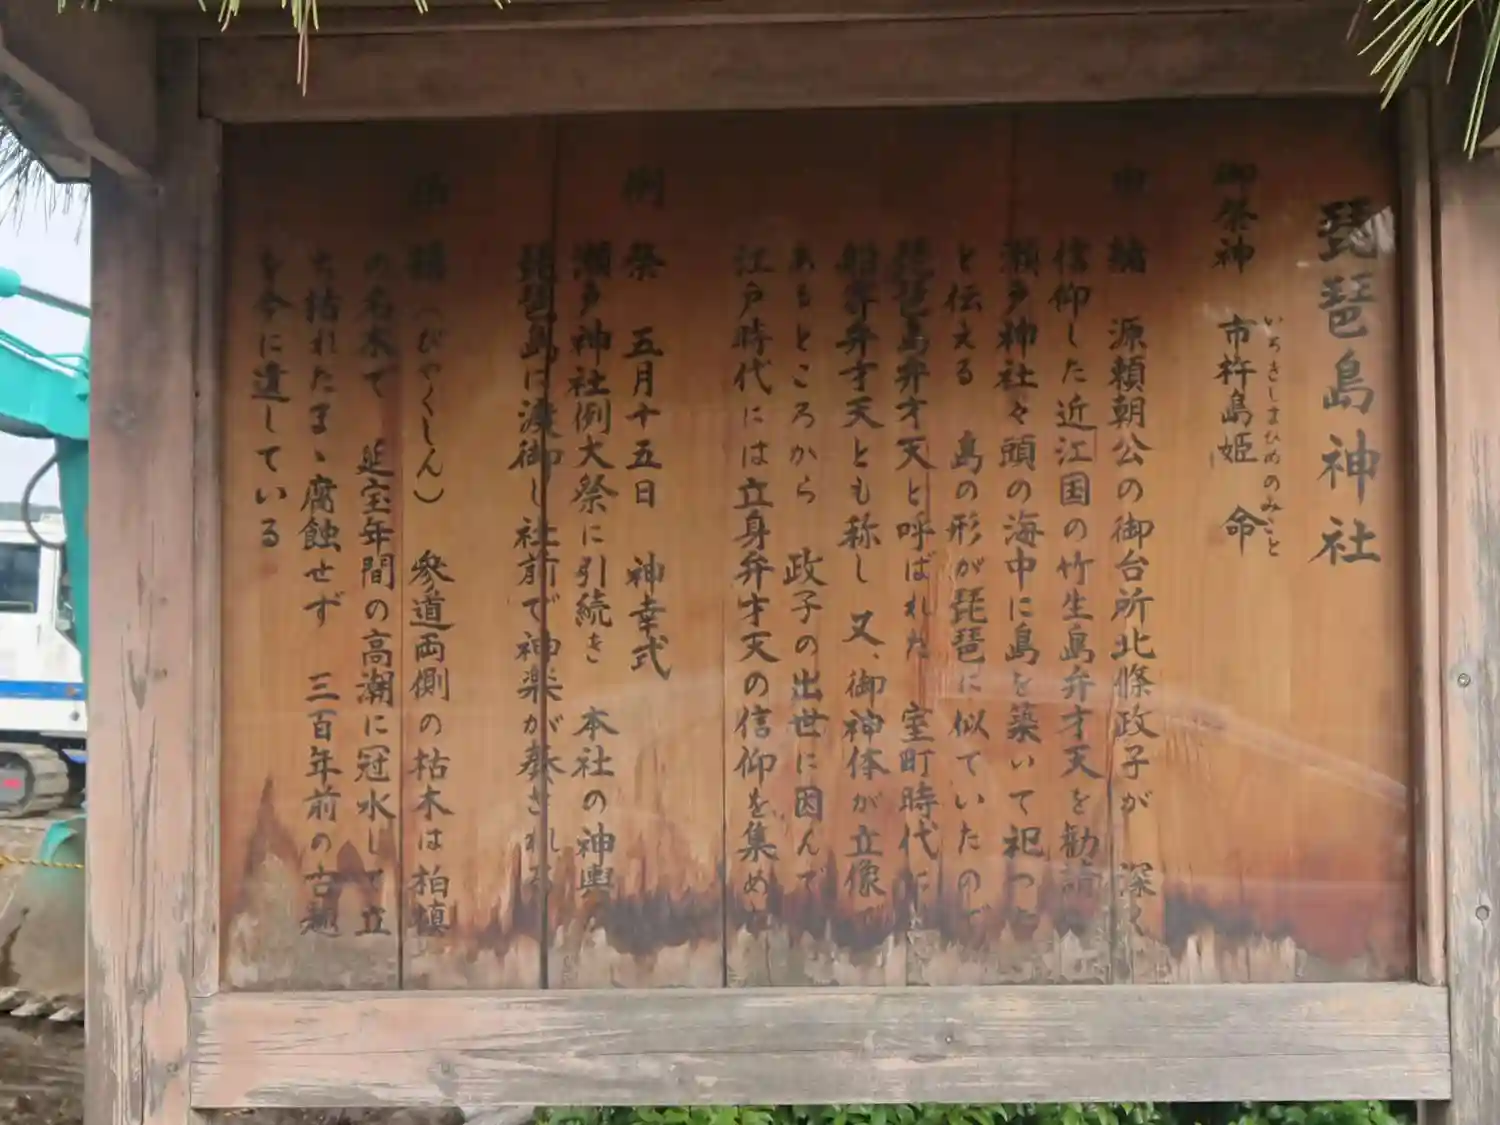 琵琶島神社
御祭神 市杵島姫 命
いちきしまひめのみこと
由緒 源頼朝公の御台所北條政子が 深く
信仰した近江国の竹生島弁才天を勧請し
瀬戸神社々頭の海中に島を築いて祀った
と伝える 島の形が琵琶に似ていたので
琵琶島弁才天と呼ばれた 室町時代に
船寄弁才天とも称し 又、御神体が立像で
あるところから 政子の出世に因んで
江戸時代には立身弁才天の信仰を集めた
例祭 五月十五日 神幸式
瀬戸神社例大祭に引続き 本社の神輿
琵琶島に渡御し社前で神楽が奏される
(びやくしん) 参道両側の枯木は柏槙
の名木で 延宝年間の高潮に冠水して立
ち枯れたまゝ腐蝕せず 三百年前の古趣
を今に遺している